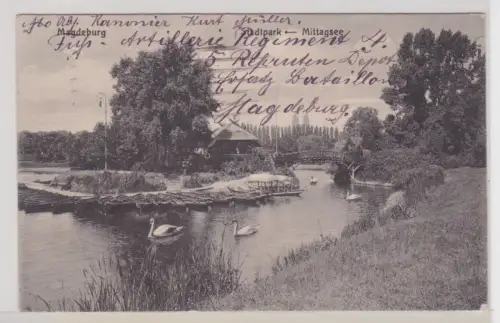 Abs. Kanonier Kurt Müller.
Magdeburg
Stadtpark — Mittagsee
Fuss-Artillerie Regiment 4.
5 Rekruten Depot
Ersatz Bataillon
Magdeburg.